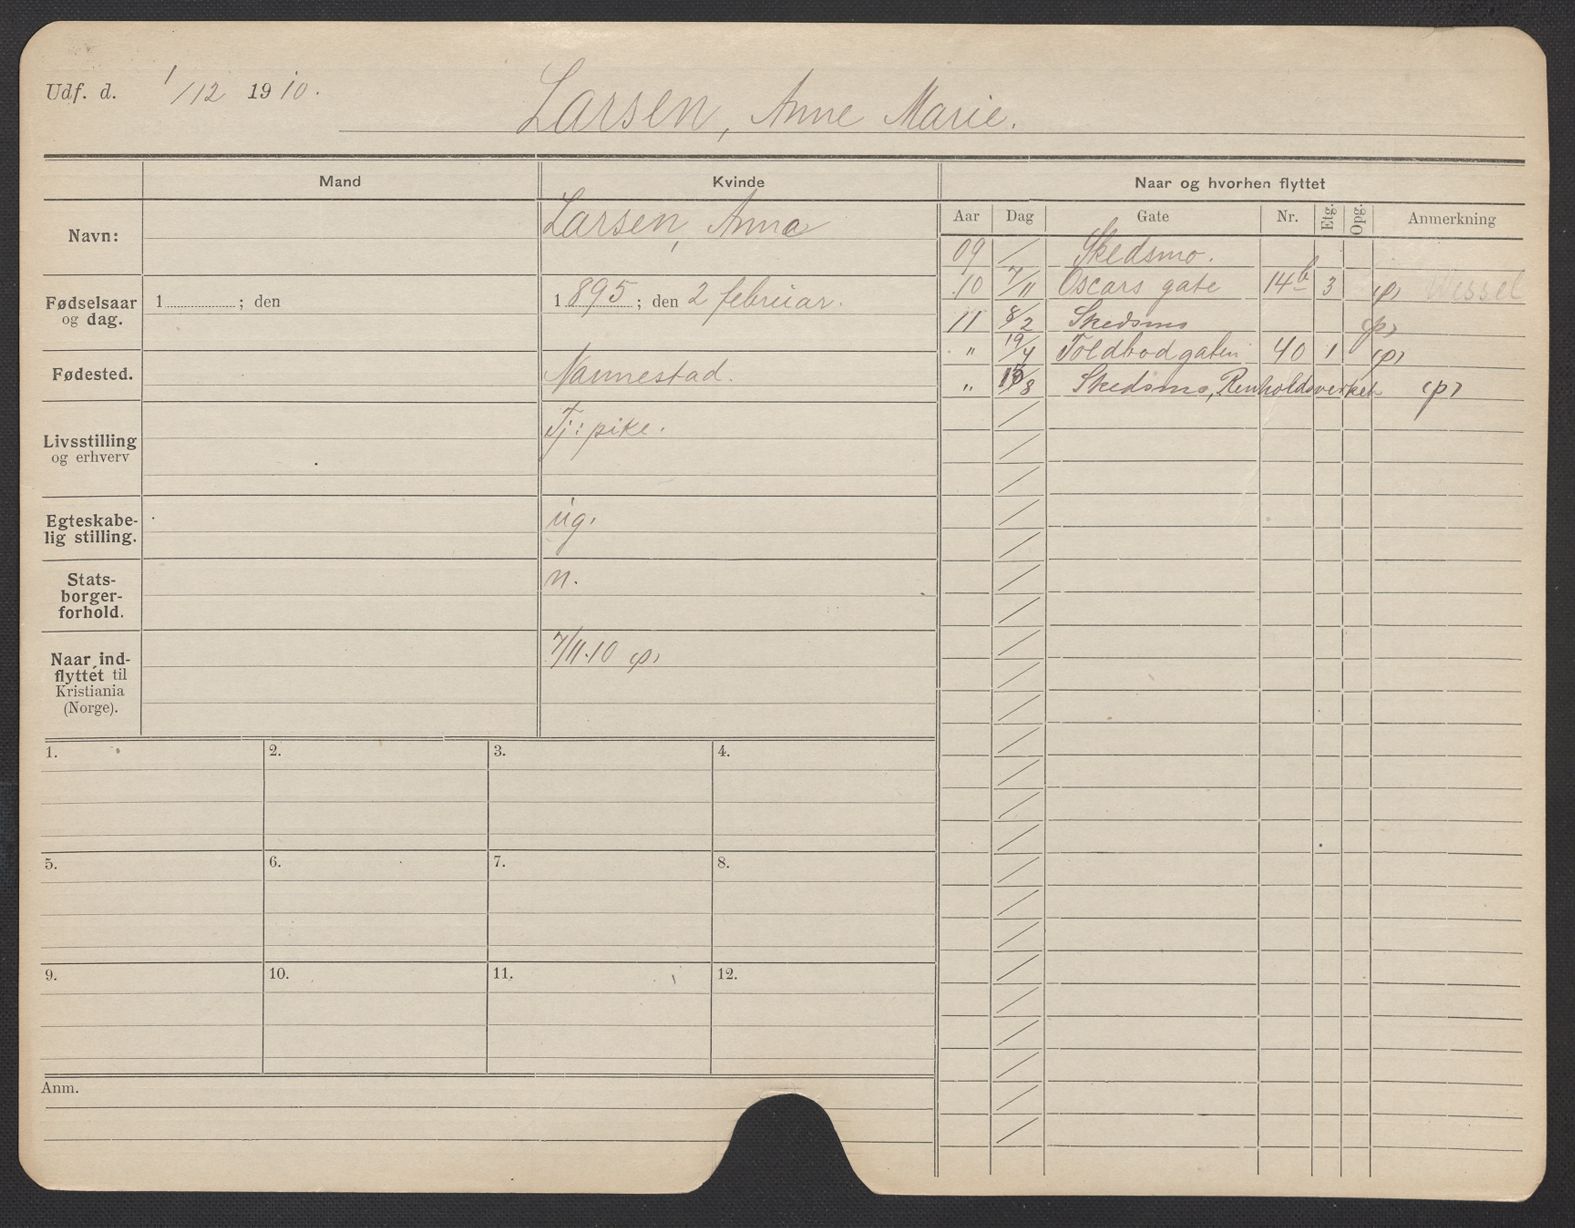 Udf. d. 1/12 1910.
Larsen, Anne Marie.
Mand
Kvinde
Naar og hvorhen flyttet
Aar Dag Gate Nr. Etg. Opg. Anmerkning
Navn:
Larsen, Anna
Fødselsaar og dag.
1 ; den
1895 ; den 2 februar.
Fødested.
Nannestad.
Livsstilling og erhverv
Tj: pike.
Egteskabelig stilling.
ug.
Statsborgerforhold.
n.
Naar indflyttet til Kristiania (Norge).
7/11.10 (p)
09 / Skedsmo.
10 7/11 Oscars gate 14b 3 (p) Wessel
11 8/2 Skedsmo (p)
" 19/4 Toldbodgaten 40 1 (p)
" /8 Skedsmo, Renholdsverket (p)
1. 2. 3. 4.
5. 6. 7. 8.
9. 10. 11. 12.
Anm.